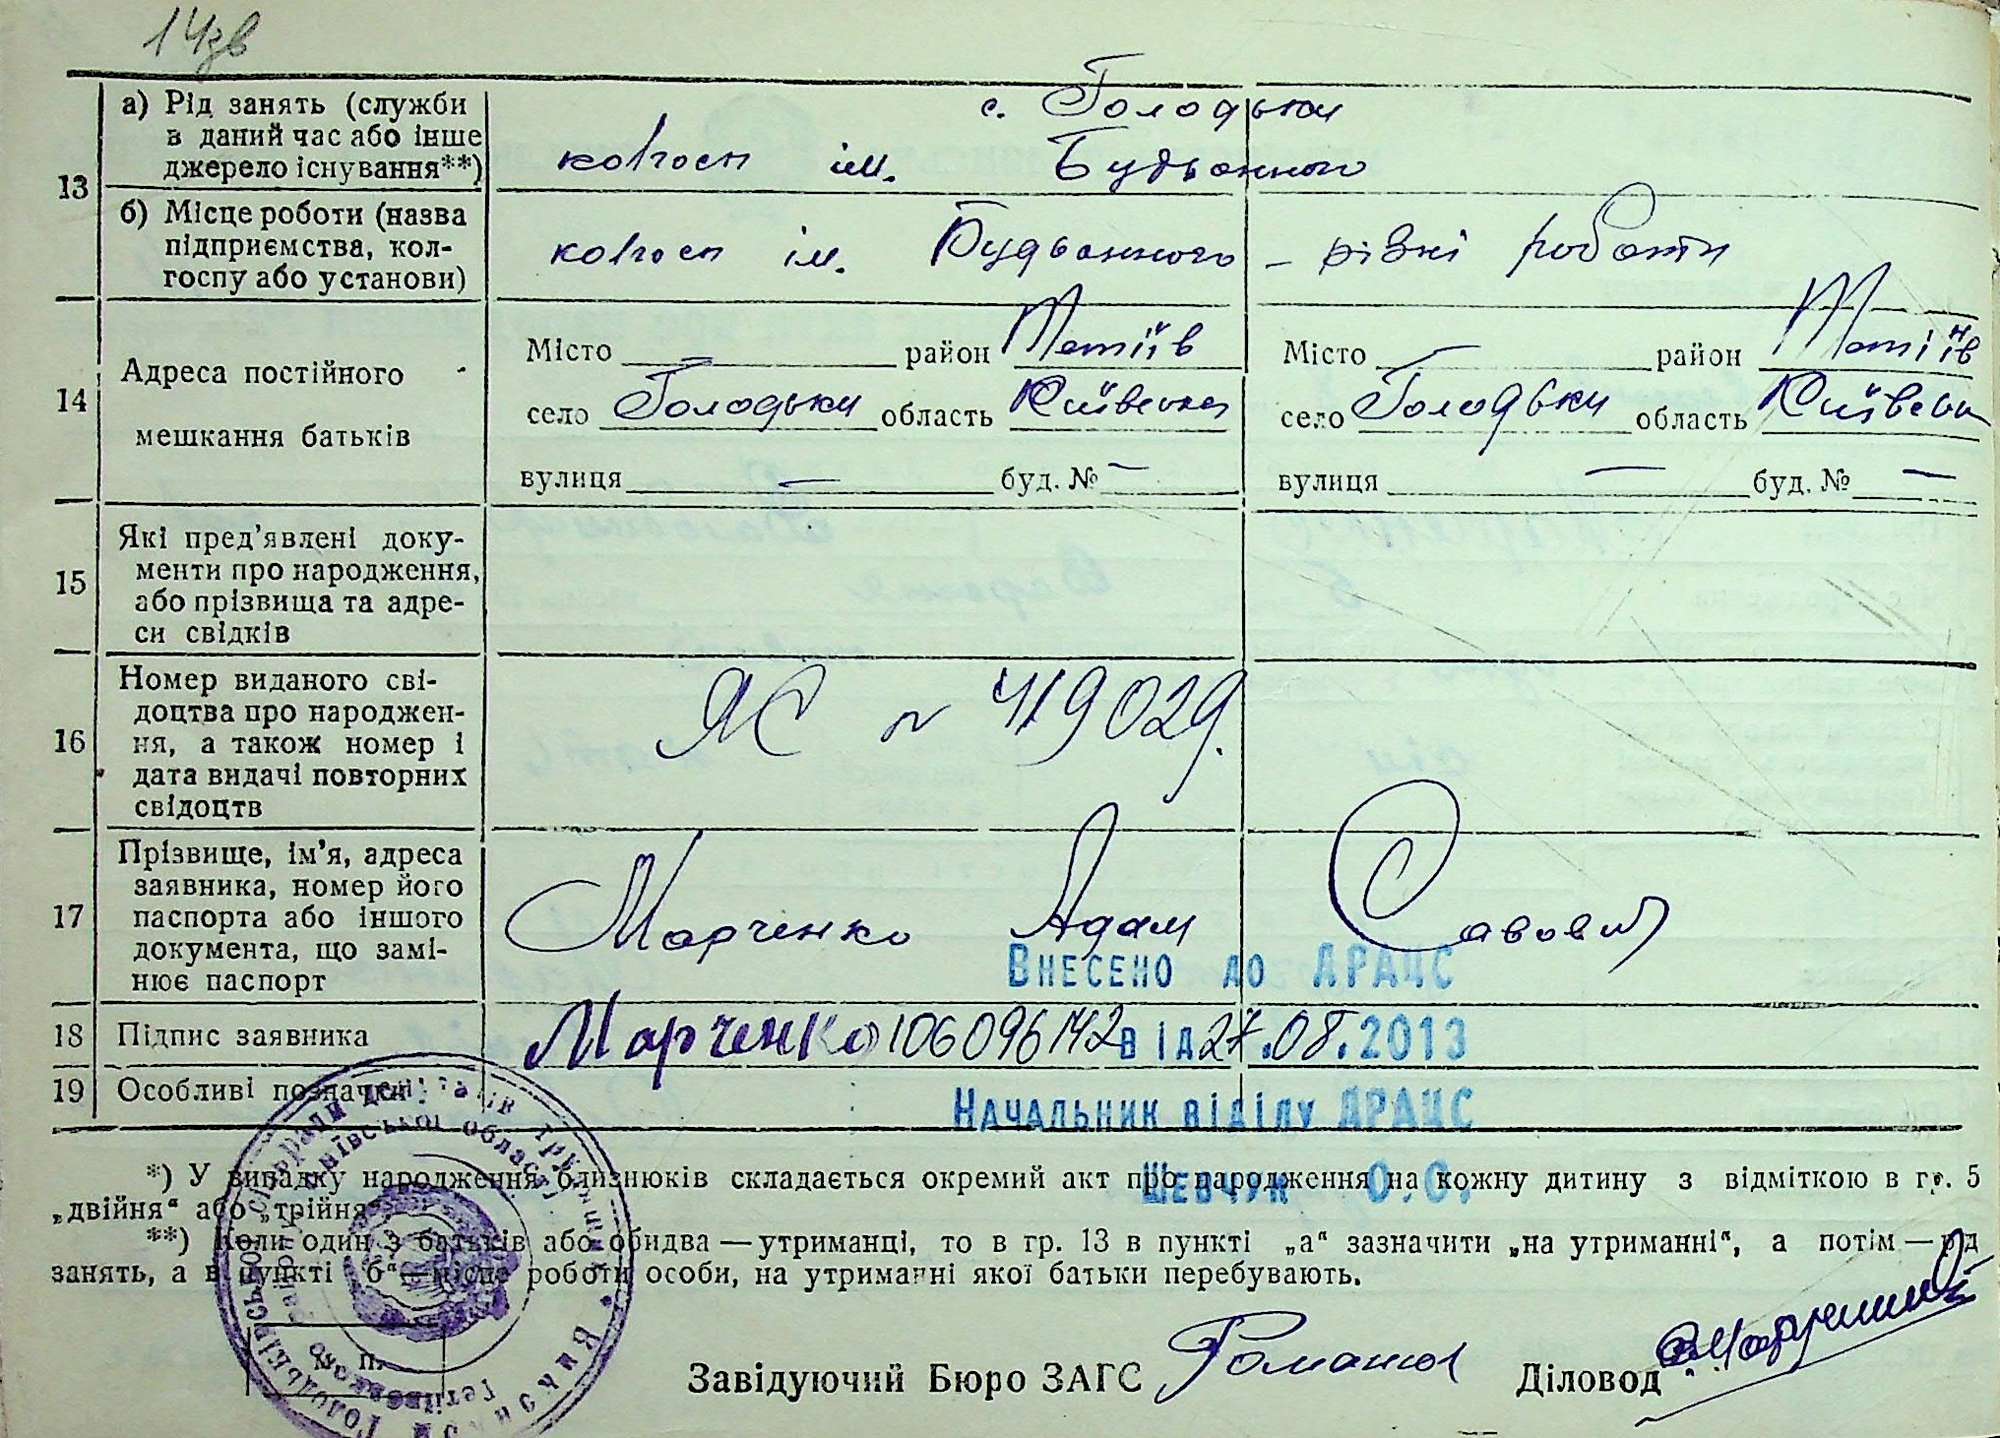 14зв
13
а) Рід занять (служби
в даний час або інше
джерело існування**)
с. Голодьки
колгосп ім. Будьонного
б) Місце роботи (назва
підприємства, кол-
госпу або установи)
колгосп ім. Будьонного - різні роботи
14
Адреса постійного
мешкання батьків
Місто — район Тетіїв
село Голодьки область Київська
вулиця — буд. № —
Місто — район Тетіїв
село Голодьки область Київськ
вулиця — буд. № —
15
Які пред’явлені доку-
менти про народження,
або прізвища та адре-
си свідків
16
Номер виданого сві-
доцтва про народжен-
ня, а також номер і
дата видачі повторних
свідоцтв
ЯС № 419029.
17
Прізвище, ім’я, адреса
заявника, номер його
паспорта або іншого
документа, що замі-
нює паспорт
Марченко Адам Савович
Внесено до ДРАЦС
18
Підпис заявника
Марченко
106096142 від 27.08.2013
19
Особливі позначки
Начальник відділу ДРАЦС
Шевчук О.С.
*) У випадку народження близнюків складається окремий акт про народження на кожну дитину з відміткою в гр. 5
„двійня“ або „трійня“.
**) Коли один з батьків або обидва — утриманці, то в гр. 13 в пункті „а“ зазначити „на утриманні“, а потім — рід
занять, а в пункті „б“ — місце роботи особи, на утриманні якої батьки перебувають.
М. П.
Завідуючий Бюро ЗАГС
Діловод